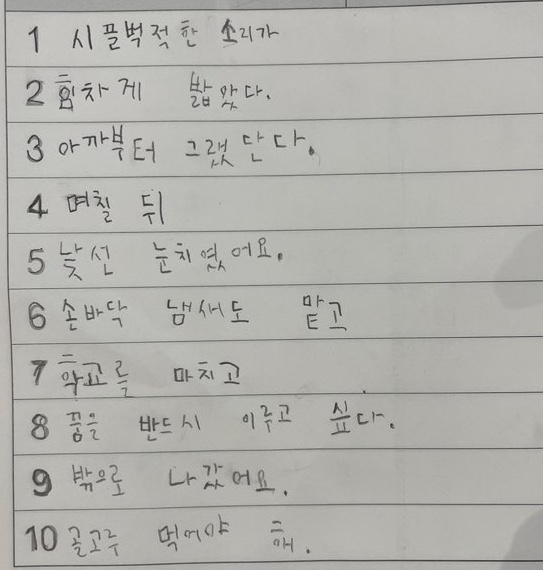 1 시끌벅적한 소리가
2 힘차게 밟았다.
3 아까부터 그랬단다.
4 며칠 뒤
5 낯선 눈치였어요.
6 손바닥 냄새도 맡고
7 학교를 마치고
8 꿈을 반드시 이루고 싶다.
9 밖으로 나갔어요.
10 골고루 먹어야 해.